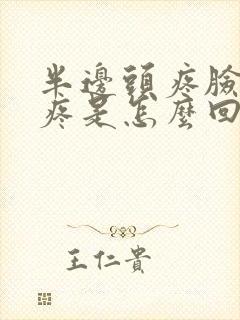 半邊頭疼臉
疼是怎麼回
王仁貴